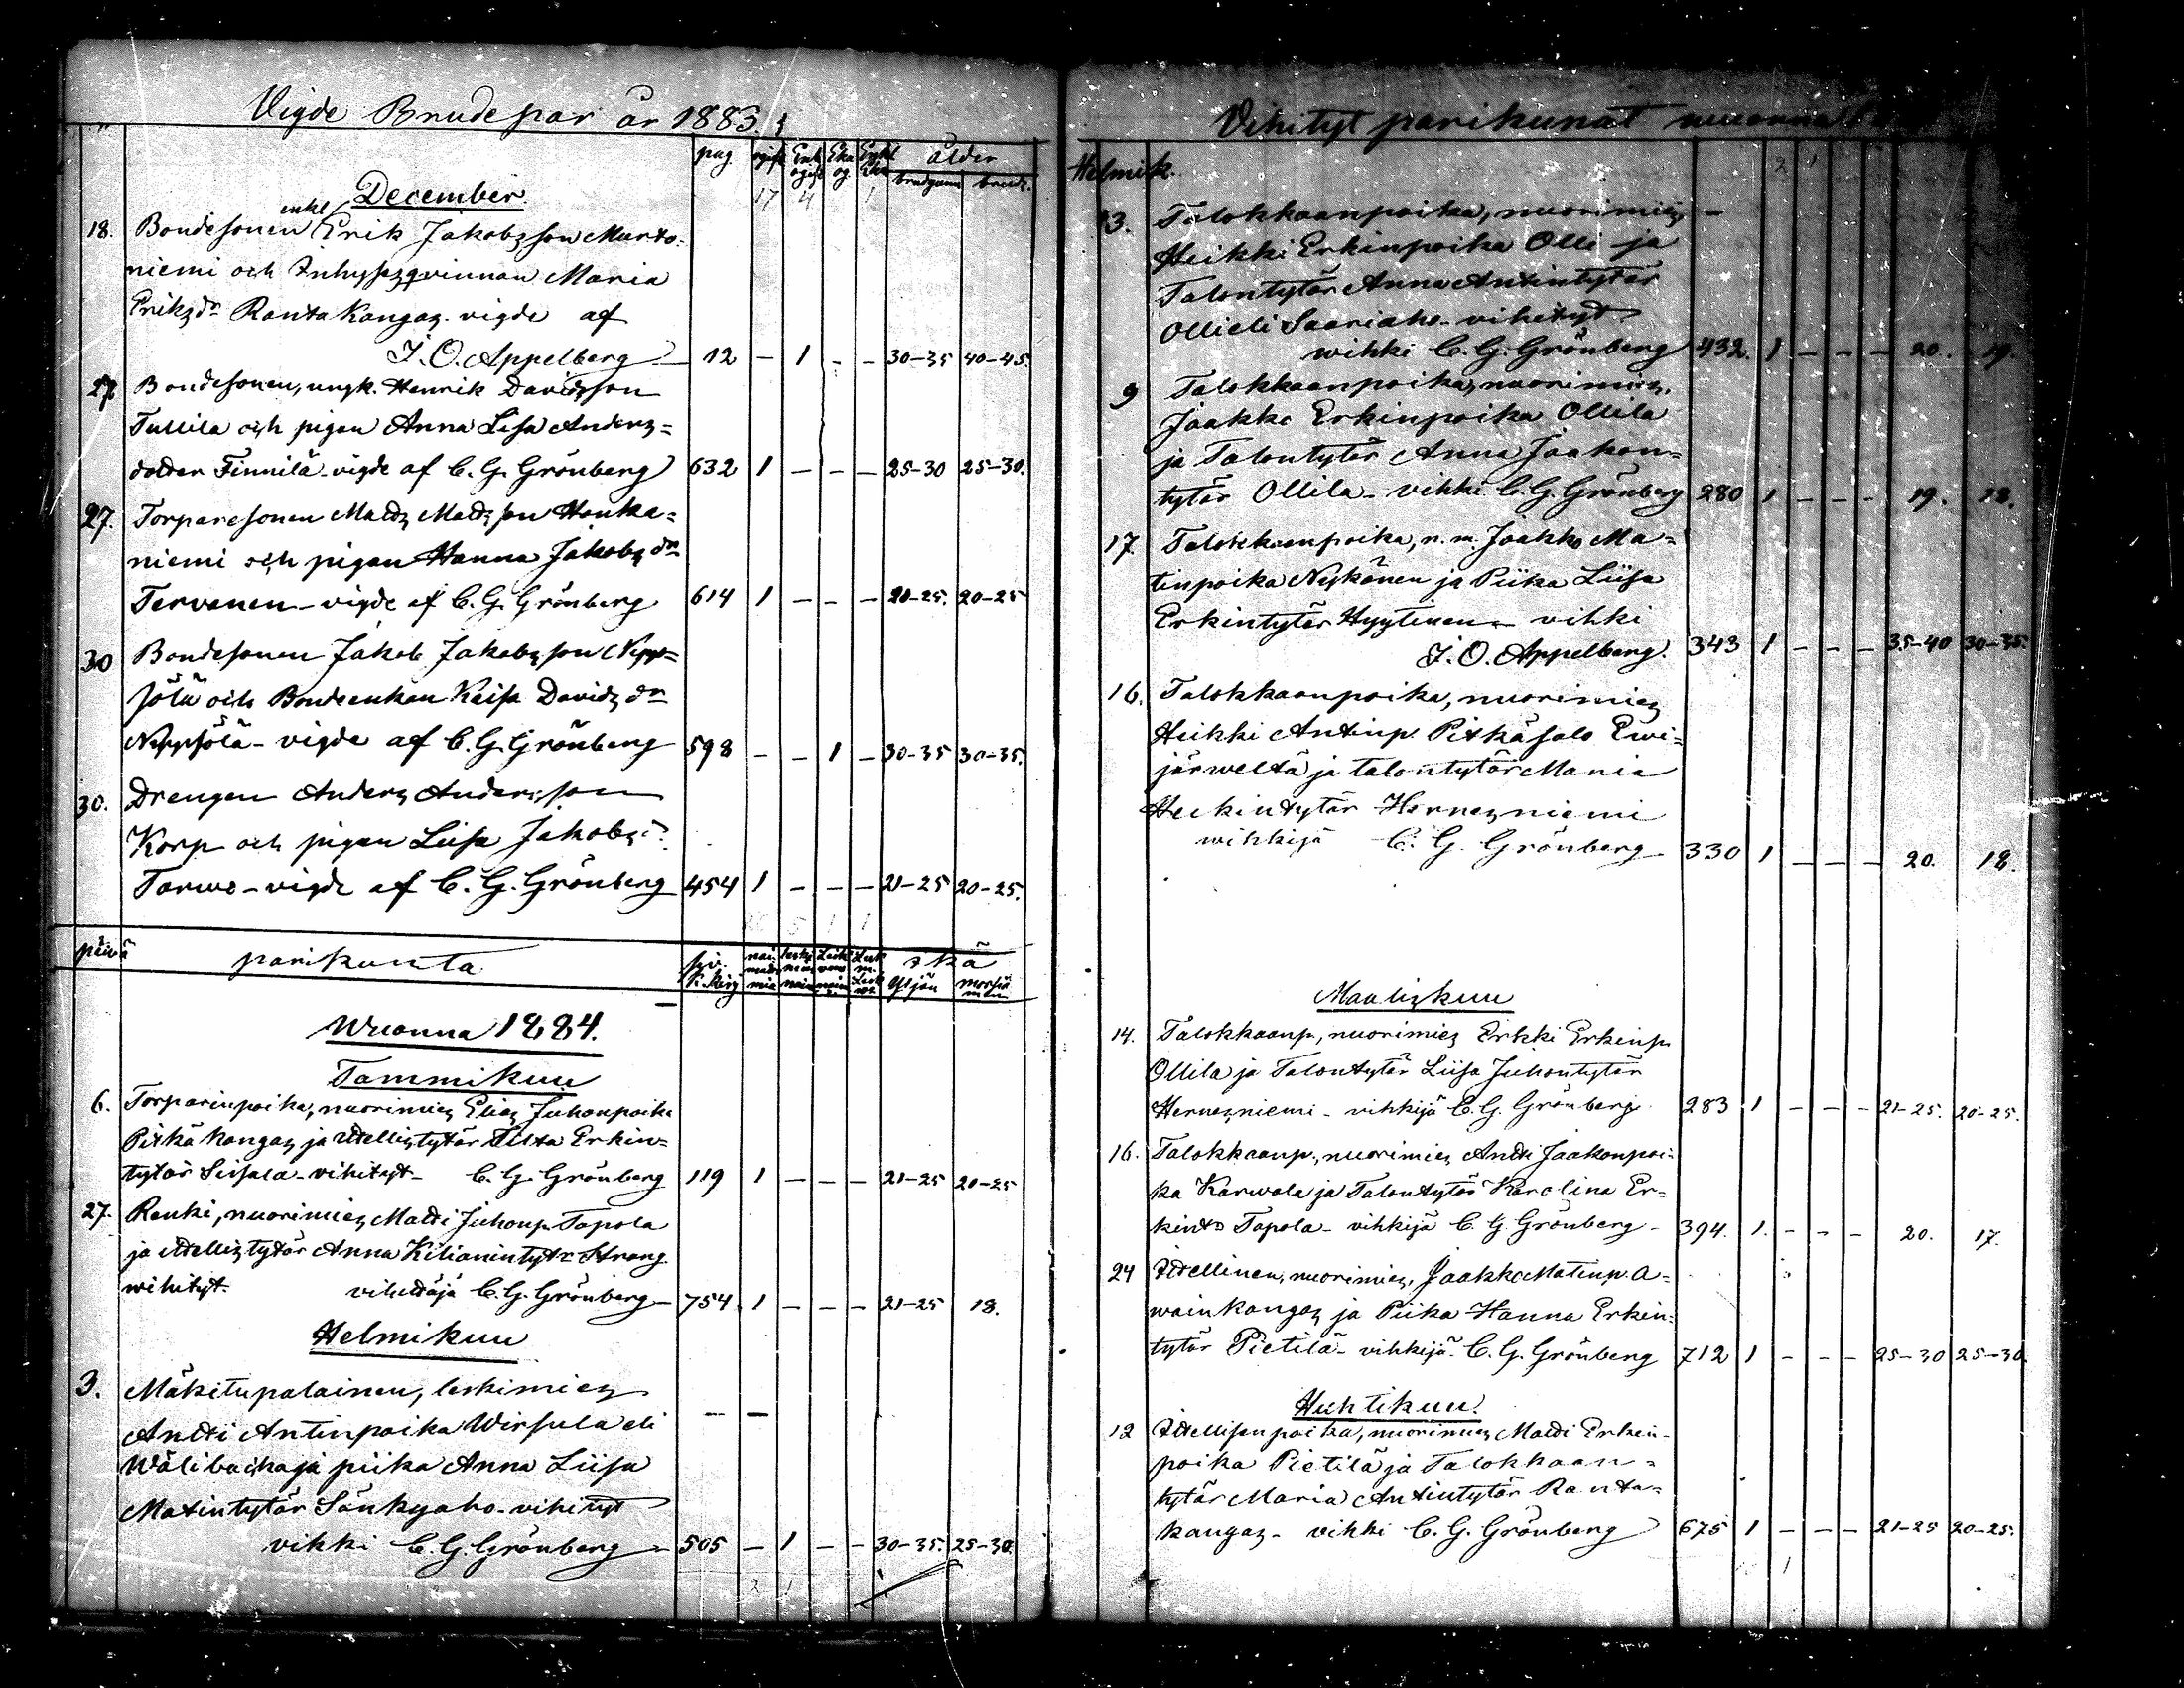 Vigde Brudepar år 1883.
pag ogift Enkl ogift Eka og Enkl Eka ålder
brudgum brud.
December.
17 4 1
18. Bondesonen enkl Erik Jakobsson Murto-
niemi och Inhysesqvinnan Maria
Eriksdr Rantakangas vigde af
J. O. Appelberg 12 - 1 - - 30-35 40-45.
27. Bondesonen, ungk. Henrik Davidsson
Tullila och pigan Anna Lisa Anders=
dotter Finnilä vigde af C. G. Grönberg 632 1 - - - 25-30 25-30.
27. Torparesonen Matts Mattsson Honka=
niemi och pigan Hanna Jakobsdr
Tervonen - vigde af C. G. Grönberg 614 1 - - - 20-25. 20-25
30 Bondesonen Jakob Jakobsson Nypp=
sölä och Bondeenkan Kaisa Davidsdr
Nyppsölä - vigde af C. G. Grönberg 598 - - 1 - 30-35 30-35.
30. Drengen Anders Andersson
Korp och pigan Liisa Jakobsd.
Tarwo - vigde af C. G. Grönberg 454 1 - - - 21-25 20-25.
päivä parikunta siv. K. kirj ikä
Yljän morsiamen
Wuonna 1884.
Tammikuu
6. Torparinpoika, nuorimies Elias Juhonpoika
Pitkäkangas ja Itellistytär Tilta Erkin=
tytär Seisala - vihityt - C. G. Grönberg 119 1 - - - 21-25 20-25
27. Renki, nuorimies Matti Juhonp. Topola
ja Itellistytär Anna Kilianintytr Strang
wihityt. vihittäjä C. G. Grönberg - 754 1 - - - 21-25 18.
Helmikuu
3. Mäkitupalainen, leskimies
Antti Antinpoika Wirsula eli - -
Wälibacka ja piika Anna Liisa
Matintytär Sänkyaho - vihityt
vihki C. G. Grönberg - 505 - 1 - - 30-35. 25-30.
Vihityt parikunat wuonna
Helmik.
13. Talokkaanpoika, nuorimies -
Heikki Erkinpoika Olli ja
Talontytär Anna Antintytär
Ollieli Saariaho - vihityt
wihki C. G. Grönberg 432. 1 - - - 20. 19.
9 Talokkaanpoika, nuorimies,
Jaakko Erkinpoika Ollila
ja Talontytär Anna Jaakon=
tytär Ollila - vihki C. G. Grönberg 280 1 - - - 19. 18.
17 Talokkaanpoika, n. m. Jaakko Ma=
tinpoika Nykänen ja Piika Liisa
Erkintytär Hyytinen - vihki
J. O. Appelberg. 343 1 - - - 35-40 30-35.
16. Talokkaanpoika, nuorimies
Heikki Antinp. Pitkäsalo Ewi=
järweltä ja talontytär Maria
Heikintytär Hernesniemi
wihkijä C. G. Grönberg 330 1 - - - 20. 18.
Maaliskuu
14. Talokkaanp., nuorimies Erkki Erkinp
Ollila ja Talontytär Liisa Juhontytär
Hernesniemi - vihkijä C. G. Grönberg 283 1 - - - 21-25. 20-25.
16. Talokkaanp., nuorimies Antti Jaakonpoi=
ka Karwala ja Talontytär Karolina Er=
kintr Topola - vihkijä C. G. Grönberg - 394. 1. - - - 20. 17.
24 Itellinen, nuorimies, Jaakko Matinp. A=
wainkangas ja Piika Hanna Erkin=
tytär Pietilä - vihkijä C. G. Grönberg 712 1 - - - 25-30 25-30.
Huhtikuu.
12 Itellisenpoika, nuorimies Matti Erkin-
poika Pietilä ja Talokkaan=
tytär Maria Antintytär Ranta=
kangas - vihki C. G. Grönberg 675 1 - - - 21-25 20-25.